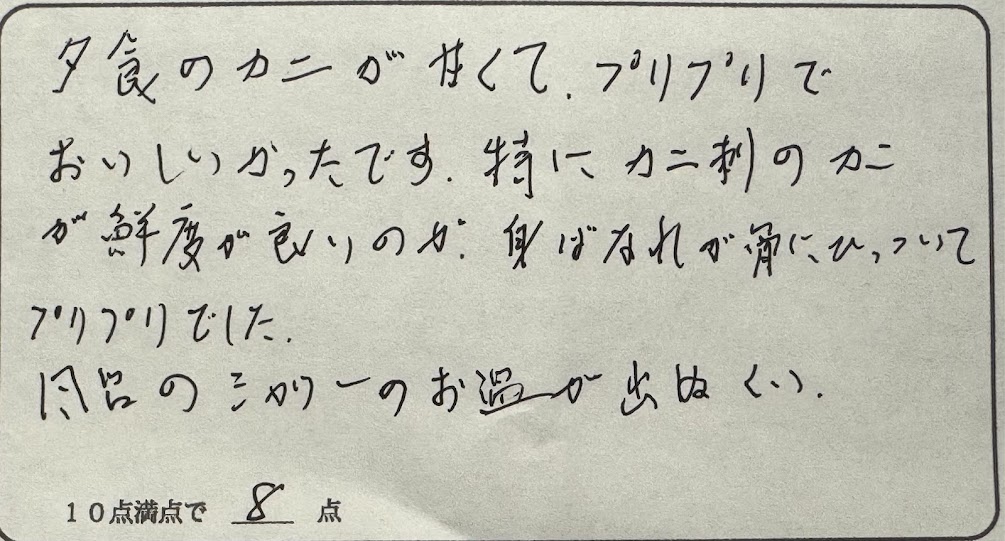 夕食のカニが甘くて、プリプリで
おいしいかったです。特にカニ刺のカニ
が鮮度が良いのか、身ばなれが骨にひっついて
プリプリでした。
風呂のシャワーのお湯が出ぬくい。
10点満点で 8 点